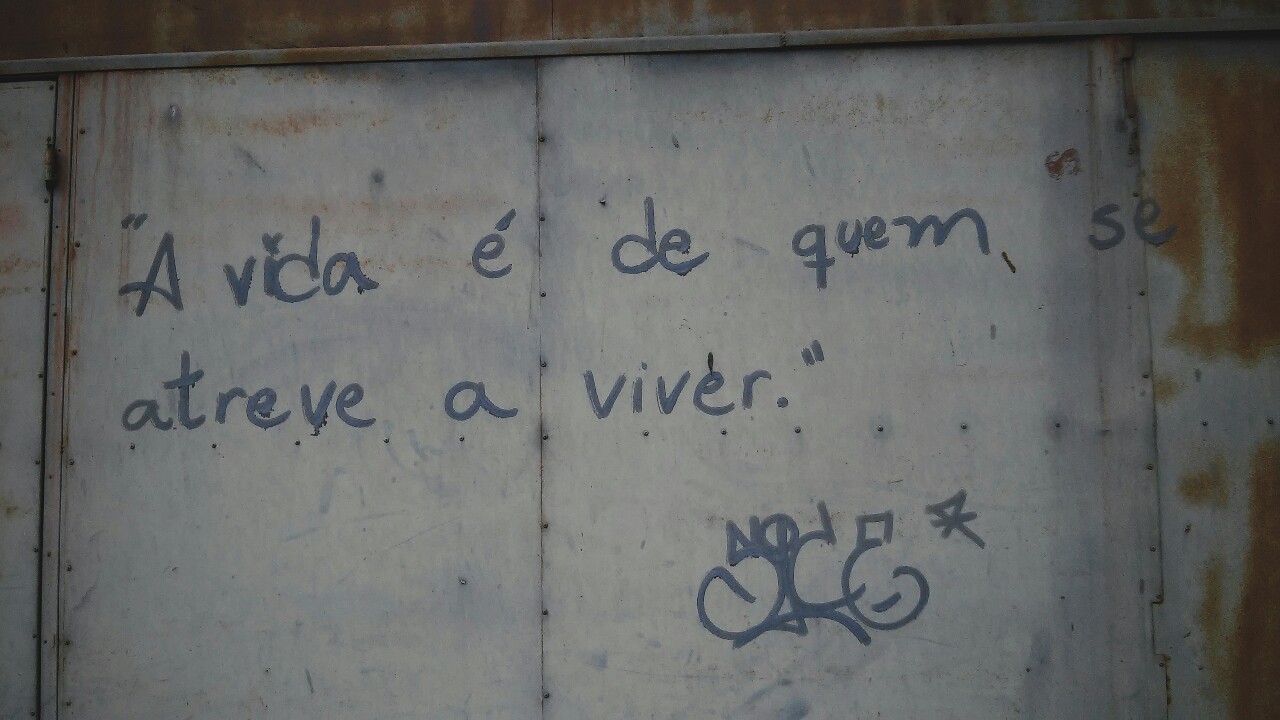 "A vida é de quem se
atreve a viver."